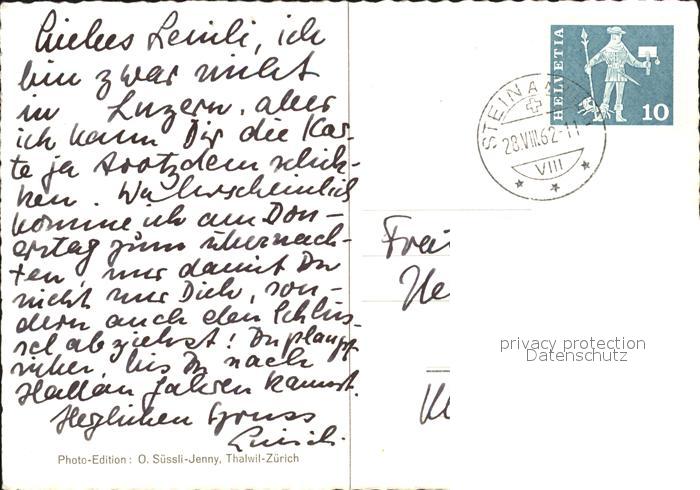 Liebes Leinli, ich
bin zwar nicht
in Luzern, aber
ich kann Dir die Kar-
te ja trotzdem schik-
ken. Wahrscheinlich
komme ich am Don-
erstag zum übernach-
ten, nur damit Du
nicht nur Dich, son-
dern auch den Schlüs-
sel abziehst! Du
bis Du nach
Hallau fahren kannst.
Herzlichen Gruss
Photo-Edition: O. Süssli-Jenny, Thalwil-Zürich
HELVETIA
10
STEINA
28.VIII.62-11
VIII
He
privacy protection
Datenschutz